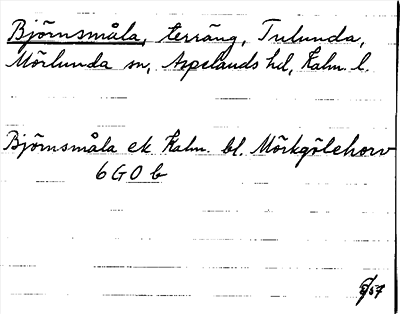 Björnsmåla, terräng, Tulunda,
Mörlunda sn, Aspelands hd, Kalm. l.
Björnsmåla ek Kalm. bl. Mörkgölehorv
6 G 0 b